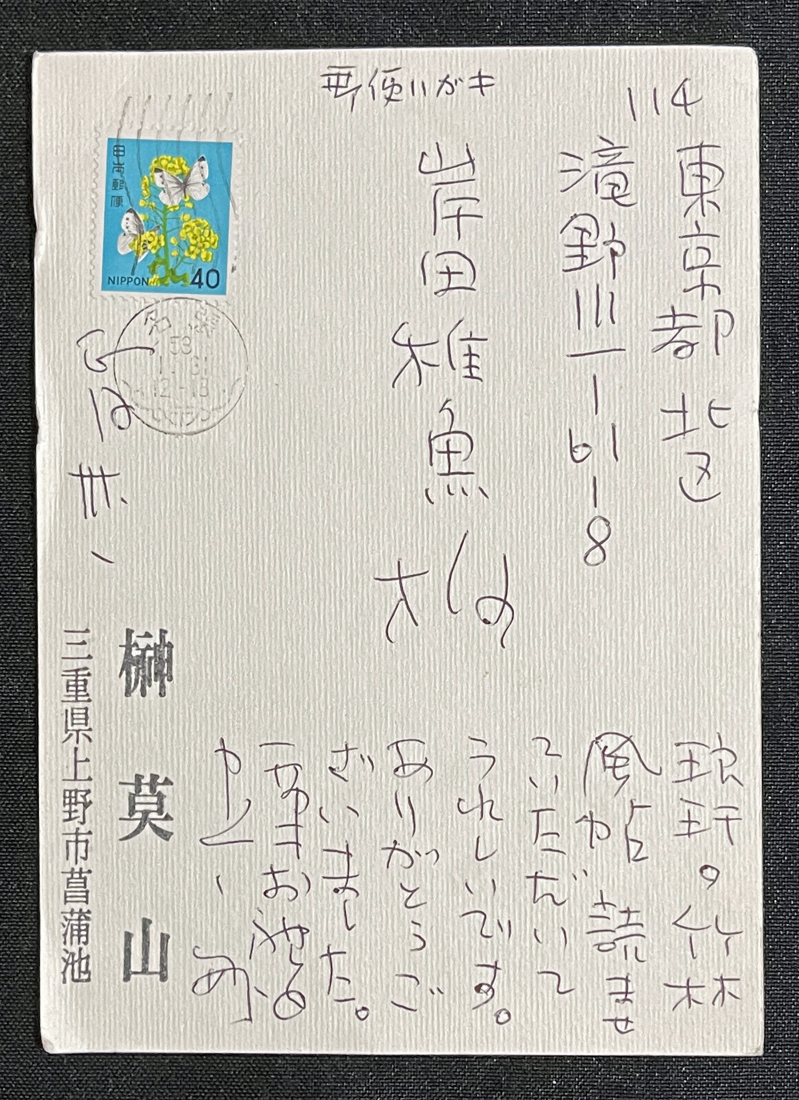 郵便ハガキ
114
東京都北区
滝野川一-61-8
岸田稚魚様
琅玕。竹林
風帖読ませ
ていただいて
うれしいです。
ありがとうご
ざいました。
一筆お礼
日本郵便
NIPPON
40
名張
59
12-18
榊莫山
三重県上野市菖蒲池